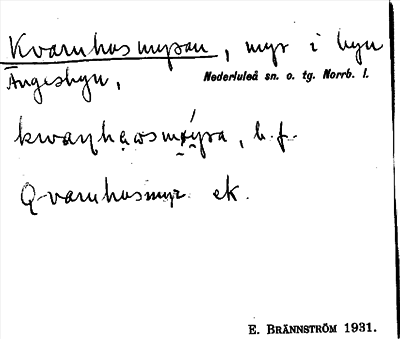 Kvarnhusmyran, myr i byn
Ängesbyn,
Nederluleå sn. o. tg. Norrb. l.
b. f.
Qvarnhusmyr. ek.
E. BRÄNNSTRÖM 1931.